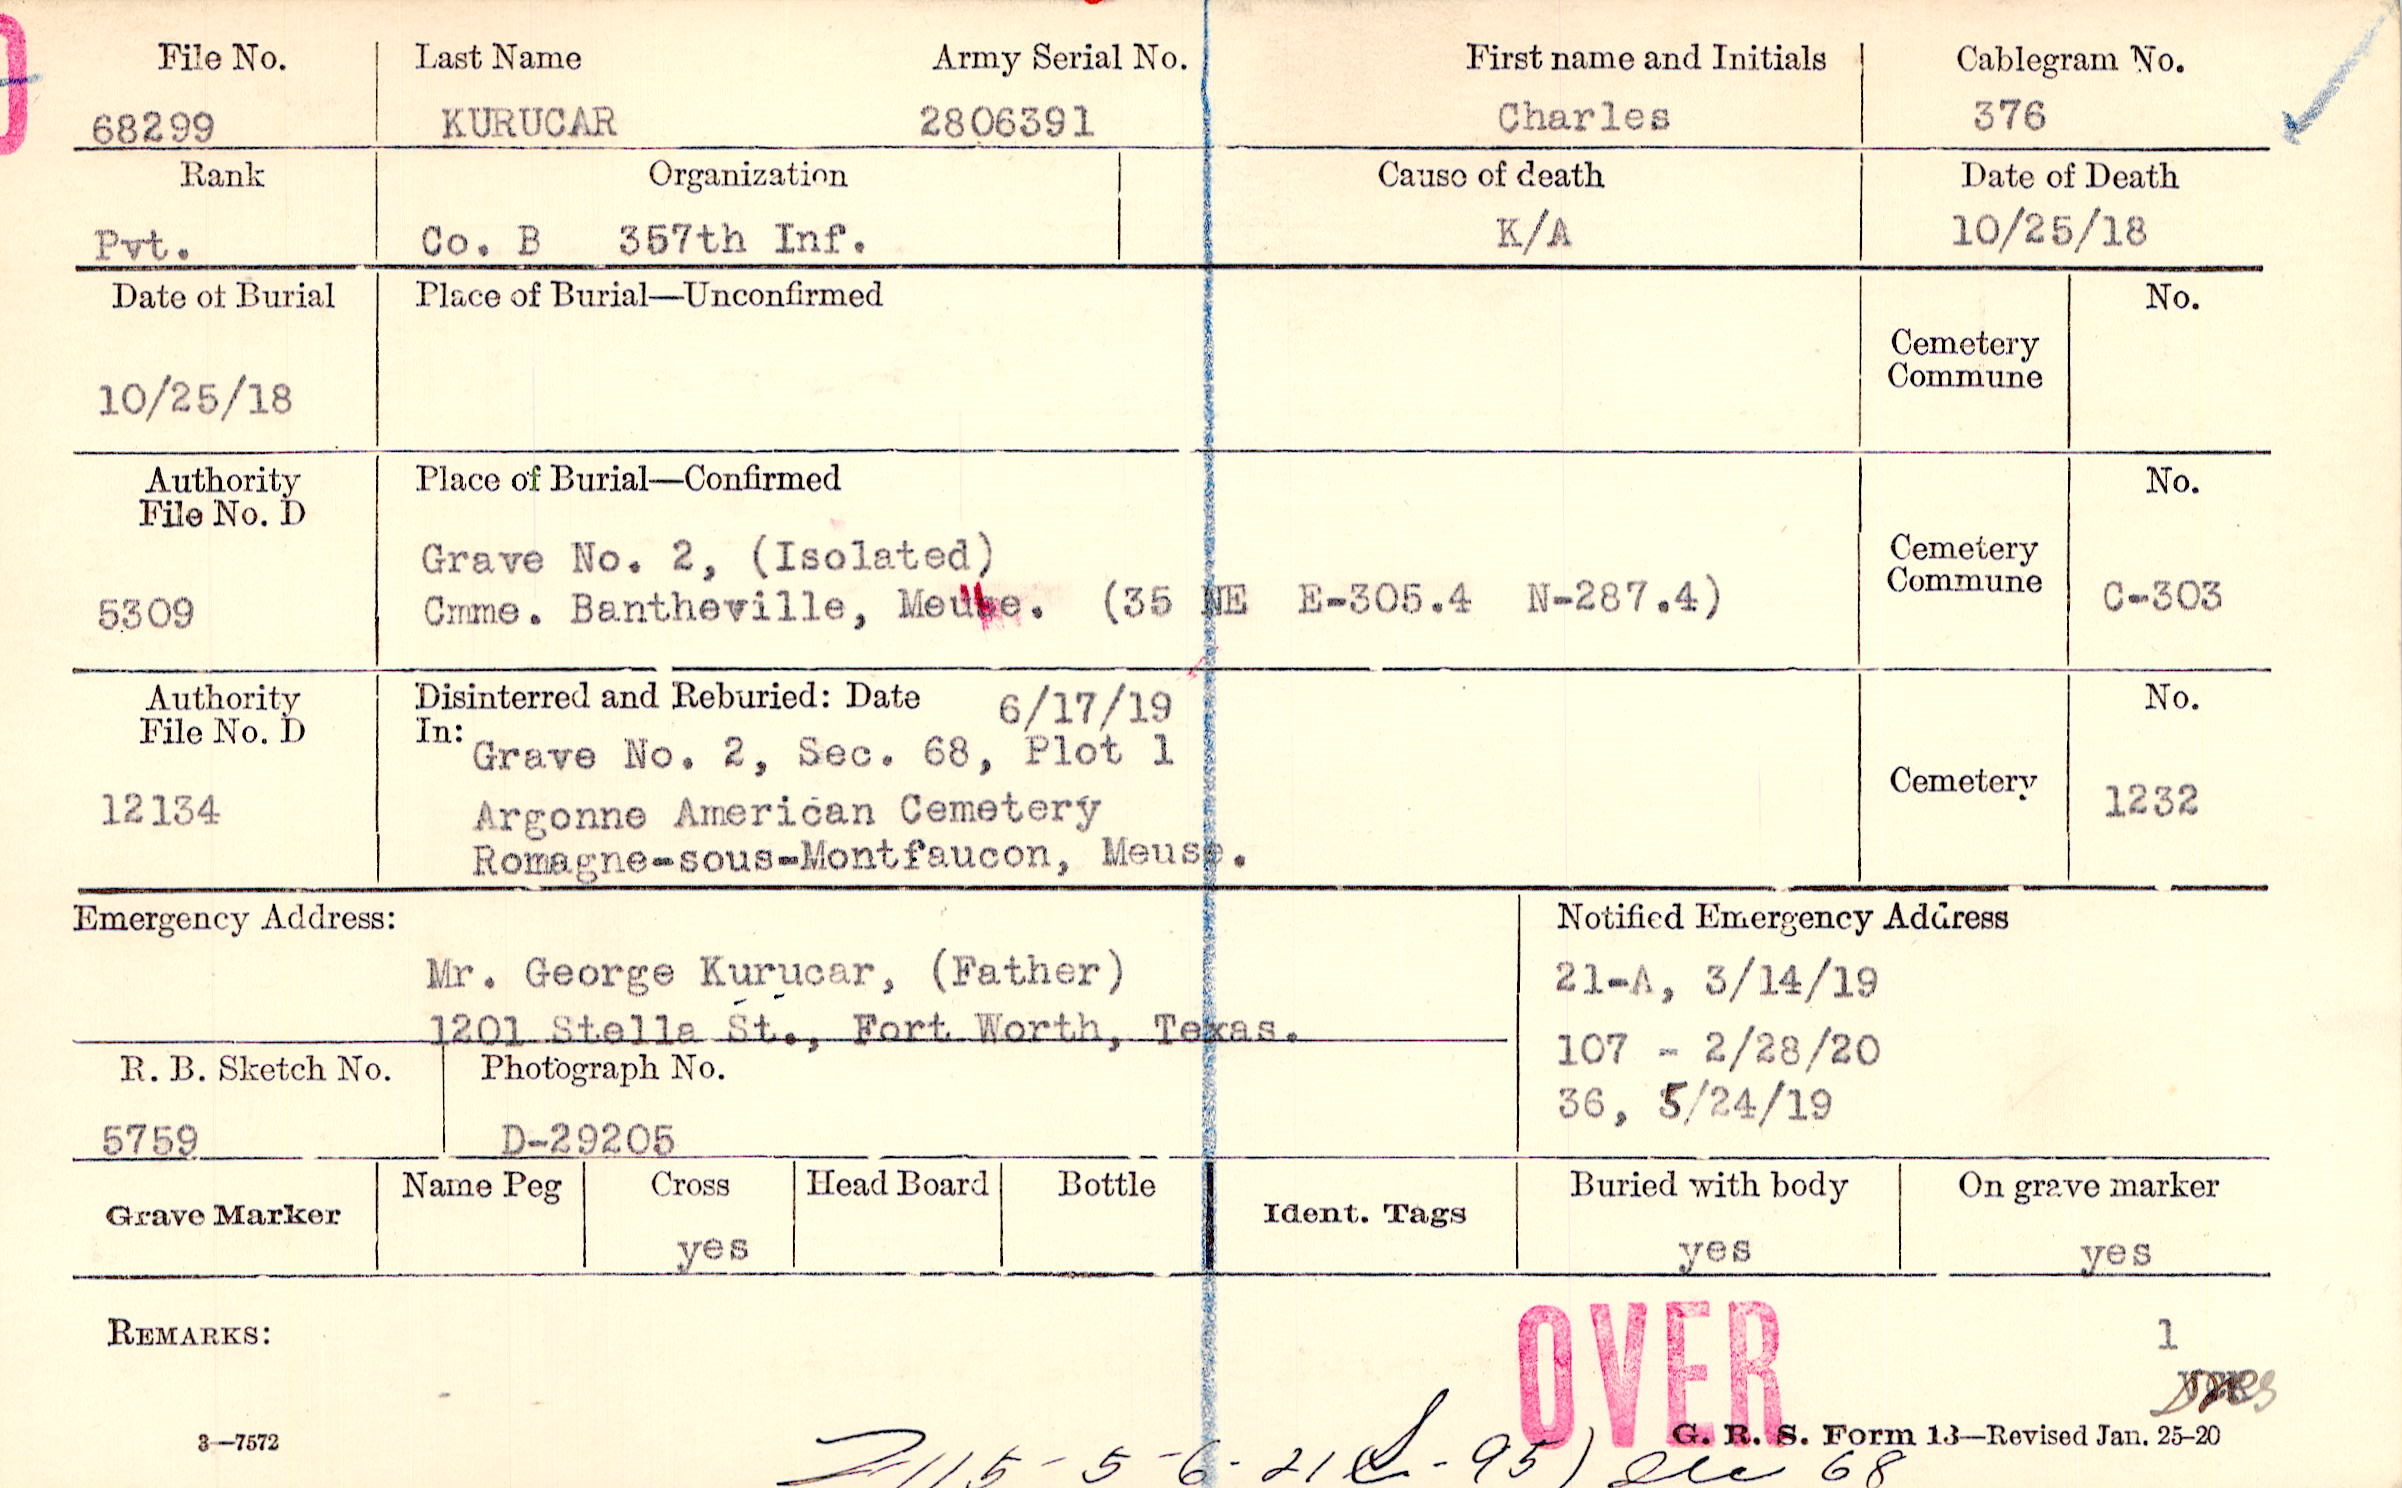 File No. Last Name Army Serial No. First name and Initials Cablegram No.
68299 KURUCAR 2806391 Charles 376
Rank Organization Cause of death Date of Death
Pvt. Co. B 357th Inf. K/A 10/25/18
Date of Burial Place of Burial—Unconfirmed No.
Cemetery
Commune
10/25/18
Authority Place of Burial—Confirmed No.
File No. D
Grave No. 2, (Isolated) Cemetery
5309 Cmme. Bantheville, Meuse. (35 NE E-305.4 N-287.4) Commune C-303
Authority Disinterred and Reburied: Date 6/17/19 No.
File No. D In:
Grave No. 2, Sec. 68, Plot 1
12134 Argonne American Cemetery Cemetery 1232
Romagne-sous-Montfaucon, Meuse.
Emergency Address: Notified Emergency Address
Mr. George Kurucar, (Father) 21-A, 3/14/19
1201 Stella St., Fort Worth, Texas. 107 - 2/28/20
R. B. Sketch No. Photograph No. 36, 5/24/19
5759 D-29205
Grave Marker Name Peg Cross Head Board Bottle Ident. Tags Buried with body On grave marker
yes yes yes
REMARKS:
OVER
1
3—7572 G. R. S. Form 13—Revised Jan. 25-20
115-5-6-21 -95) Sec 68